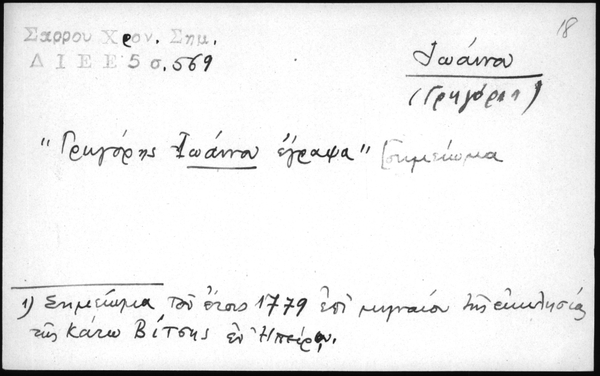 18
Σαρρου Χρον. Σημ.
ΔΙΕΕ 5 σ. 569
Ἰωάννου
(Γρηγόρης)
"Γρηγόρης Ἰωάννου ἔγραψα" [σημείωμα
1) Σημείωμα τοῦ ἔτους 1779 ἐπὶ μηναίου τῆς ἐκκλησίας
τῆς Κάτω Βίτσης ἐν Ἠπείρῳ.